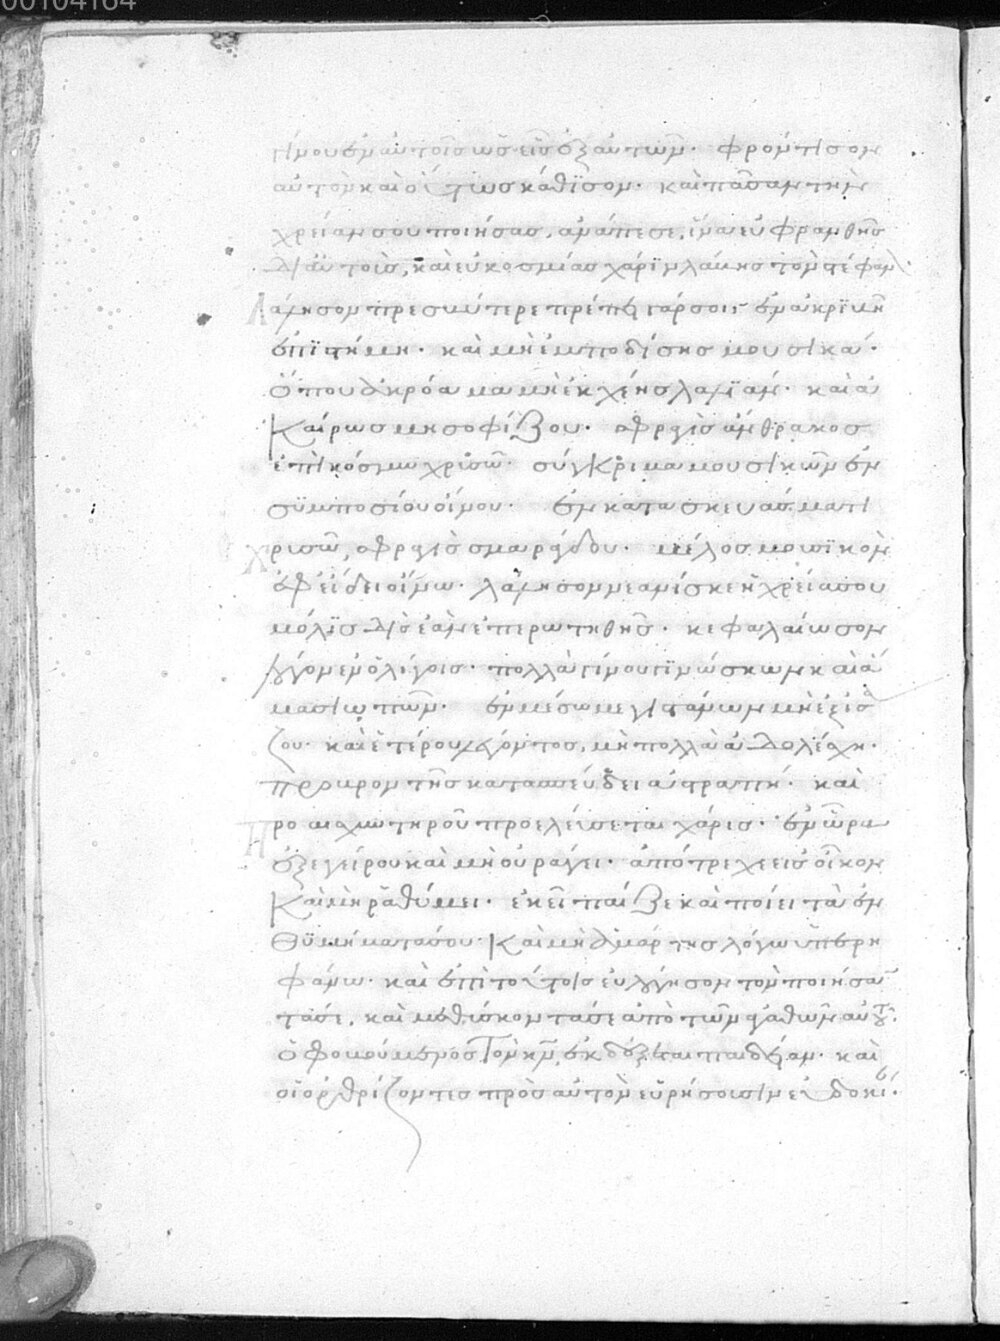 00104164
γίνου ἐν αὐτοῖς ὡς εἷς ἐξ αὐτῶν· φρόντισον
αὐτὸν καὶ οὕτως κάθϊσον· καὶ πᾶσαν τὴν
χρείαν σου ποιήσας, ἀνάπεσε, ἵνα εὐφρανθῆς
δι' αὐτοὺς, καὶ εὐκοσμίας χάριν λάβης στέφανον·
Λάλησον πρεσβύτερε πρέπει γάρ σοι· ἐν ἀκριβῆ
ἐπιστήμη· καὶ μὴ ἐμποδίσης μουσικά·
ὅπου ἀκρόαμα μὴ ἐκχέης λαλϊάν· καὶ ἀ
καίρως μὴ σοφίζου· σφραγὶς ἄνθρακος
ἐπὶ κόσμω χρυσῶ· σύγκριμα μουσικῶν ἐν
συμποσίου οἴνου· ἐν κατασκευάσματι
χρυσῶ, σφραγὶς σμαράγδου· μέλος μουσϊκὸν
ἐφ' ἡδεῖ οἴνω· λάλησον νεανίσκε εἰ χρεία σου
μόλϊς δὶς ἐὰν ἐπερωτηθῆς· κεφαλαίωσον
λόγον ἐν ὀλίγοις· πολλὰ γίνου γϊνώσκων καὶ ἅ
μα σιωπῶν· ἐν μέσω μεγιστάνων μὴ ἐξισά
ζου· καὶ ἑτέρου λέγοντος, μὴ πολλὰ ἀδολέσχη·
πρὸ βροντῆς κατασπεύδει ἀστραπή· καὶ
πρὸ αἰσχυντηροῦ προελεύσεται χάρις· ἐν ὥρα
ἐξεγείρου καὶ μὴ οὐράγει· ἀπότρεχε εἰς οἶκον
καὶ μὴ ῥαθύμει· ἐκεῖ παῖζε καὶ ποίει τὰ ἐν
θϋμήματά σου· καὶ μὴ ἁμάρτης λόγω ὑπερη
φάνω· καὶ ἐπὶ τούτοις εὐλόγησον τὸν ποιήσαν
τά σε, καὶ μεθύσκοντά σε ἀπὸ τῶν ἀγαθῶν αὐτοῦ·
ὁ φοβούμενος τὸν κν ἐκδέξεται παιδείαν· καὶ
οἱ ὀρθρίζοντες πρὸς αὐτὸν εὑρήσουσιν εὐδοκί·